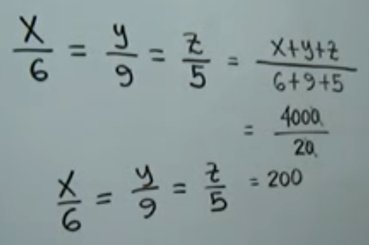 x/6 = y/9 = z/5 = x+y+z/6+9+5
= 4000/20
x/6 = y/9 = z/5 = 200